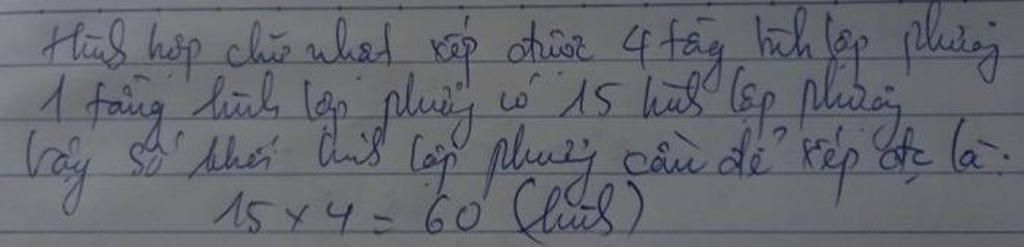 Hình hộp chữ nhật xếp được 4 tầng hình lập phương
1 tầng hình lập phương có 15 hình lập phương
Vậy số khối hình lập phương cần để xếp đc là:
15 x 4 = 60 (hình)